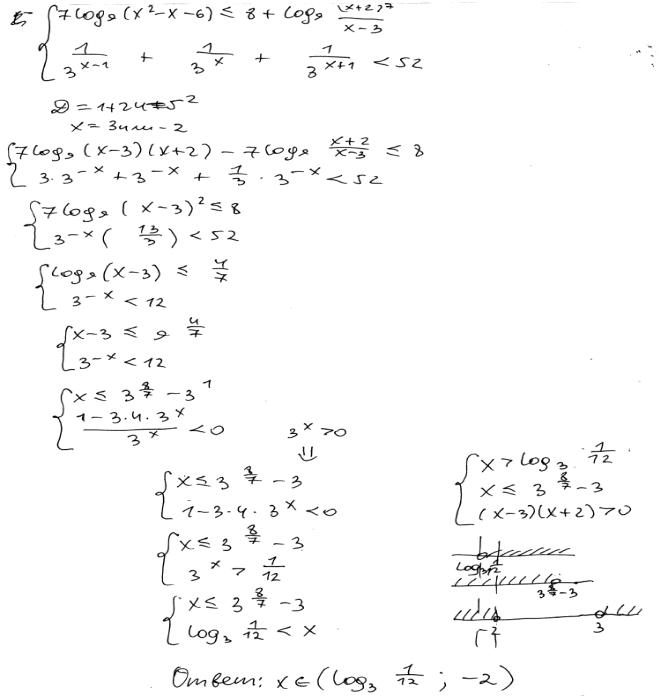 { 7 log₉(x² - x - 6) ≤ 8 + log₉ (x+2)⁷/(x-3)
{ 1/3ˣ⁻¹ + 1/3ˣ + 1/3ˣ⁺¹ < 52
D = 1+24 = 5²
x = 3 или -2
{ 7 log₉ (x-3)(x+2) - 7 log₉ (x+2)/(x-3) ≤ 8
{ 3·3⁻ˣ + 3⁻ˣ + 1/3 · 3⁻ˣ < 52
{ 7 log₉ (x-3)² ≤ 8
{ 3⁻ˣ (13/3) < 52
{ log₉(x-3) ≤ 4/7
{ 3⁻ˣ < 12
{ x-3 ≤ 9^(4/7)
{ 3⁻ˣ < 12
{ x ≤ 3^(8/7) - 3¹
{ (1-3·4·3ˣ)/3ˣ < 0
3ˣ > 0
⇓
{ x ≤ 3^(8/7) - 3
{ 1-3·4·3ˣ < 0
{ x ≤ 3^(8/7) - 3
{ 3ˣ > 1/12
{ x ≤ 3^(8/7) - 3
{ log₃ 1/12 < x
{ x > log₃ 1/12
{ x ≤ 3^(8/7) - 3
{ (x-3)(x+2) > 0
log₃ 1/12
3^(8/7) - 3
-2 3
Ответ: x ∈ (log₃ 1/12 ; -2)